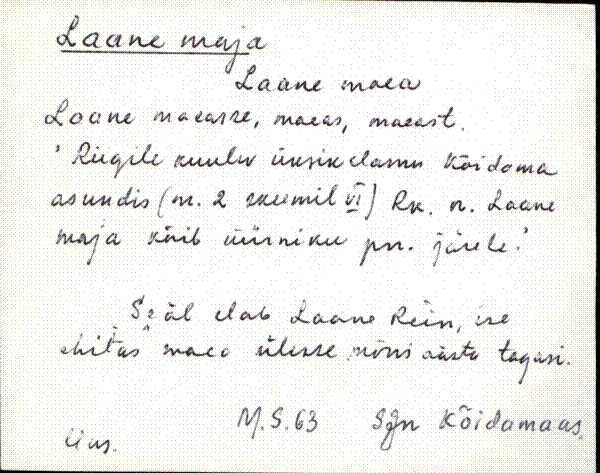 Laane maja
Laane maea
Laane maeasse, maeas, maeast.
"Riigile kuuluv üksikelamu Kõidama
asundis (nr. 2 skeemil VI) Rk. n. Laane
maja käib üürniku pn. järele."
Seäl elab Laane Rein, ise
ehitas maea ülesse mõni aasta tagasi.
M.S.63 Sgn Kõidamaas.